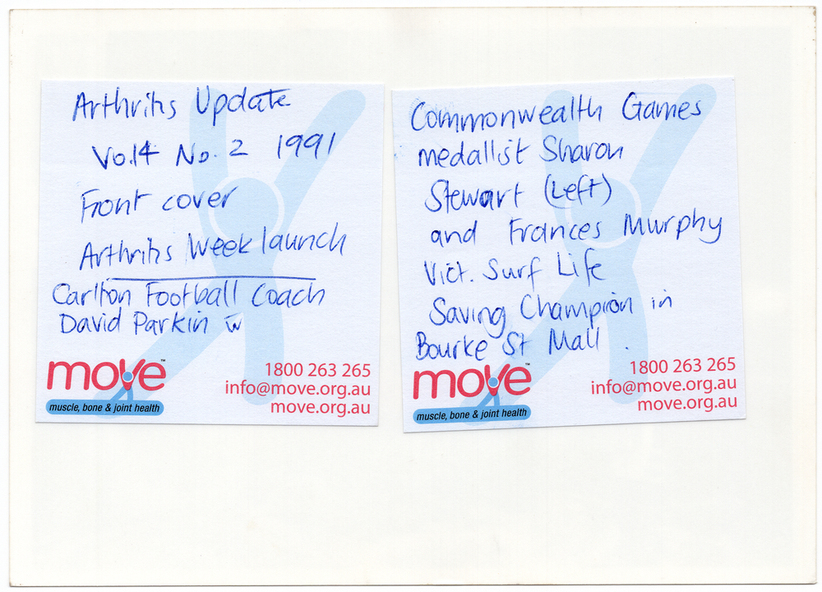 Arthritis Update
Vol4 No. 2 1991
Front cover
Arthritis Week launch
Carlton Football Coach
David Parkin w
move™
muscle, bone & joint health
1800 263 265
info@move.org.au
move.org.au
Commonwealth Games
medallist Sharon
Stewart (Left)
and Frances Murphy
Vict. Surf Life
Saving Champion in
Bourke St Mall.
move™
muscle, bone & joint health
1800 263 265
info@move.org.au
move.org.au